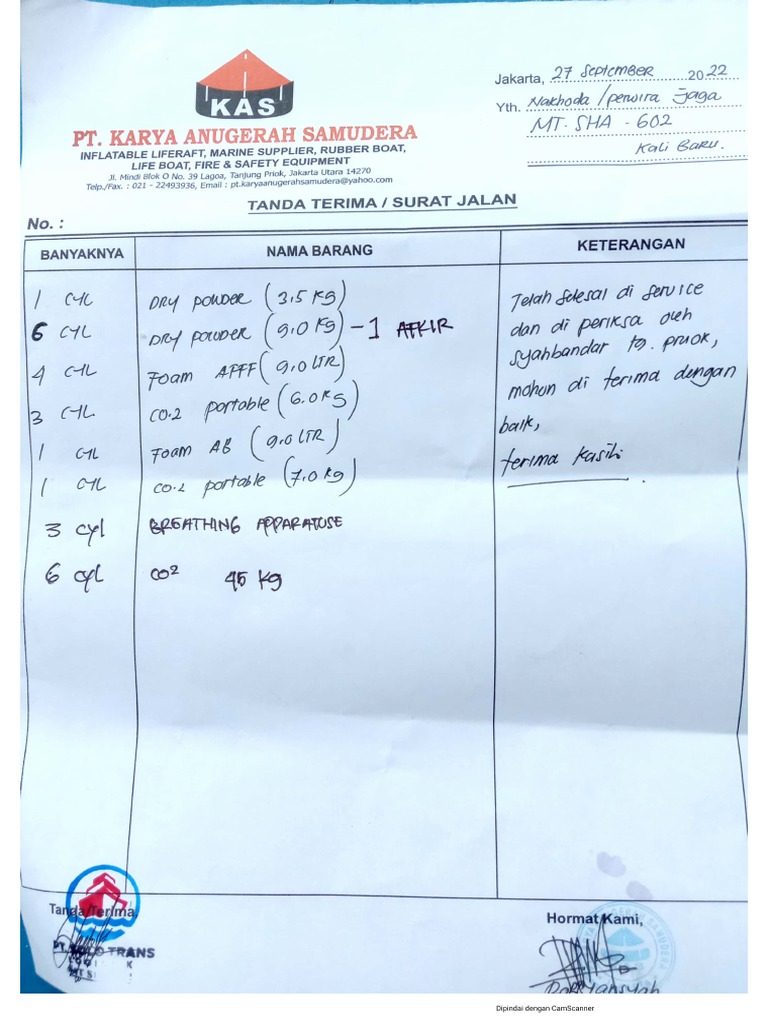 KAS
PT. KARYA ANUGERAH SAMUDERA
INFLATABLE LIFERAFT, MARINE SUPPLIER, RUBBER BOAT,
LIFE BOAT, FIRE & SAFETY EQUIPMENT
Jl. Mindi Blok O No. 39 Lagoa, Tanjung Priok, Jakarta Utara 14270
Telp./Fax. : 021 - 22493936, Email : pt.karyaanugerahsamudera@yahoo.com
Jakarta, 27 September 2022
Yth. Nakhoda / perwira Jaga
MT. SHA - 602
Kali Baru.
TANDA TERIMA / SURAT JALAN
No. :
BANYAKNYA NAMA BARANG KETERANGAN
1 CYL DRY POWDER (3.5 Kg)
6 CYL DRY POWDER (9.0 Kg) - 1 AFKIR
4 CYL Foam AFFF (9.0 LTR)
3 CYL. CO.2 portable (6.0 KG)
1 CYL Foam AB (9.0 LTR)
1 CYL CO.2 portable (7.0 Kg)
3 Cyl BREATHING APPARATUSE
6 Cyl CO2 45 Kg
Telah Selesai di service
dan di periksa oleh
Syahbandar tg. priok,
mohon di terima dengan
baik,
terima kasih.
Tanda Terima,
PT. SOLO TRANS
Hormat Kami,
Dipindai dengan CamScanner